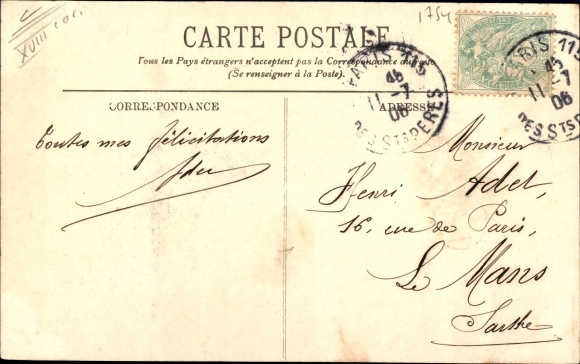 XVIII
1754
CARTE POSTALE
Tous les Pays étrangers n'acceptent pas la Correspondance au recto
(Se renseigner à la Poste).
CORRESPONDANCE
ADRESSE
PARIS 115
11 -7
06
DES STS PERES
PARIS 115
11 -7
06
DES STS PERES
Toutes mes félicitations
Monsieur
Henri Adet,
16, rue de Paris,
Le Mans
Sarthe